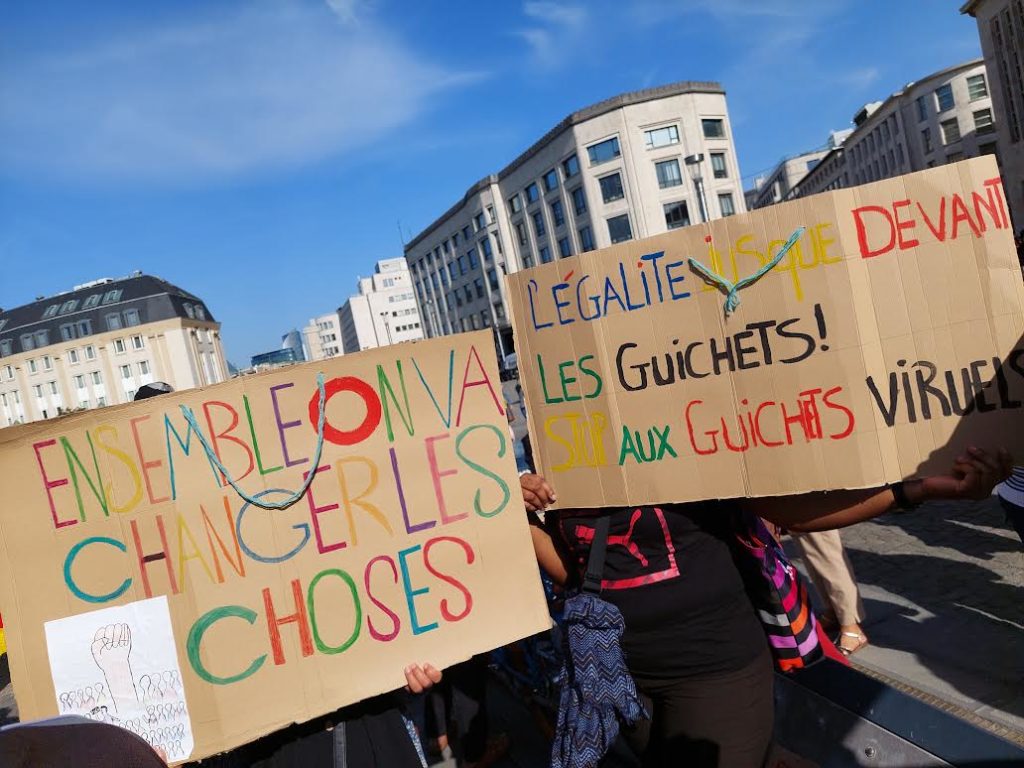 ENSEMBLE ON VA
CHANGER LES
CHOSES
L'ÉGALITE jUSQUE DEVANT
LES GUICHETS!
STOP AUX GUICHETS VIRUELS